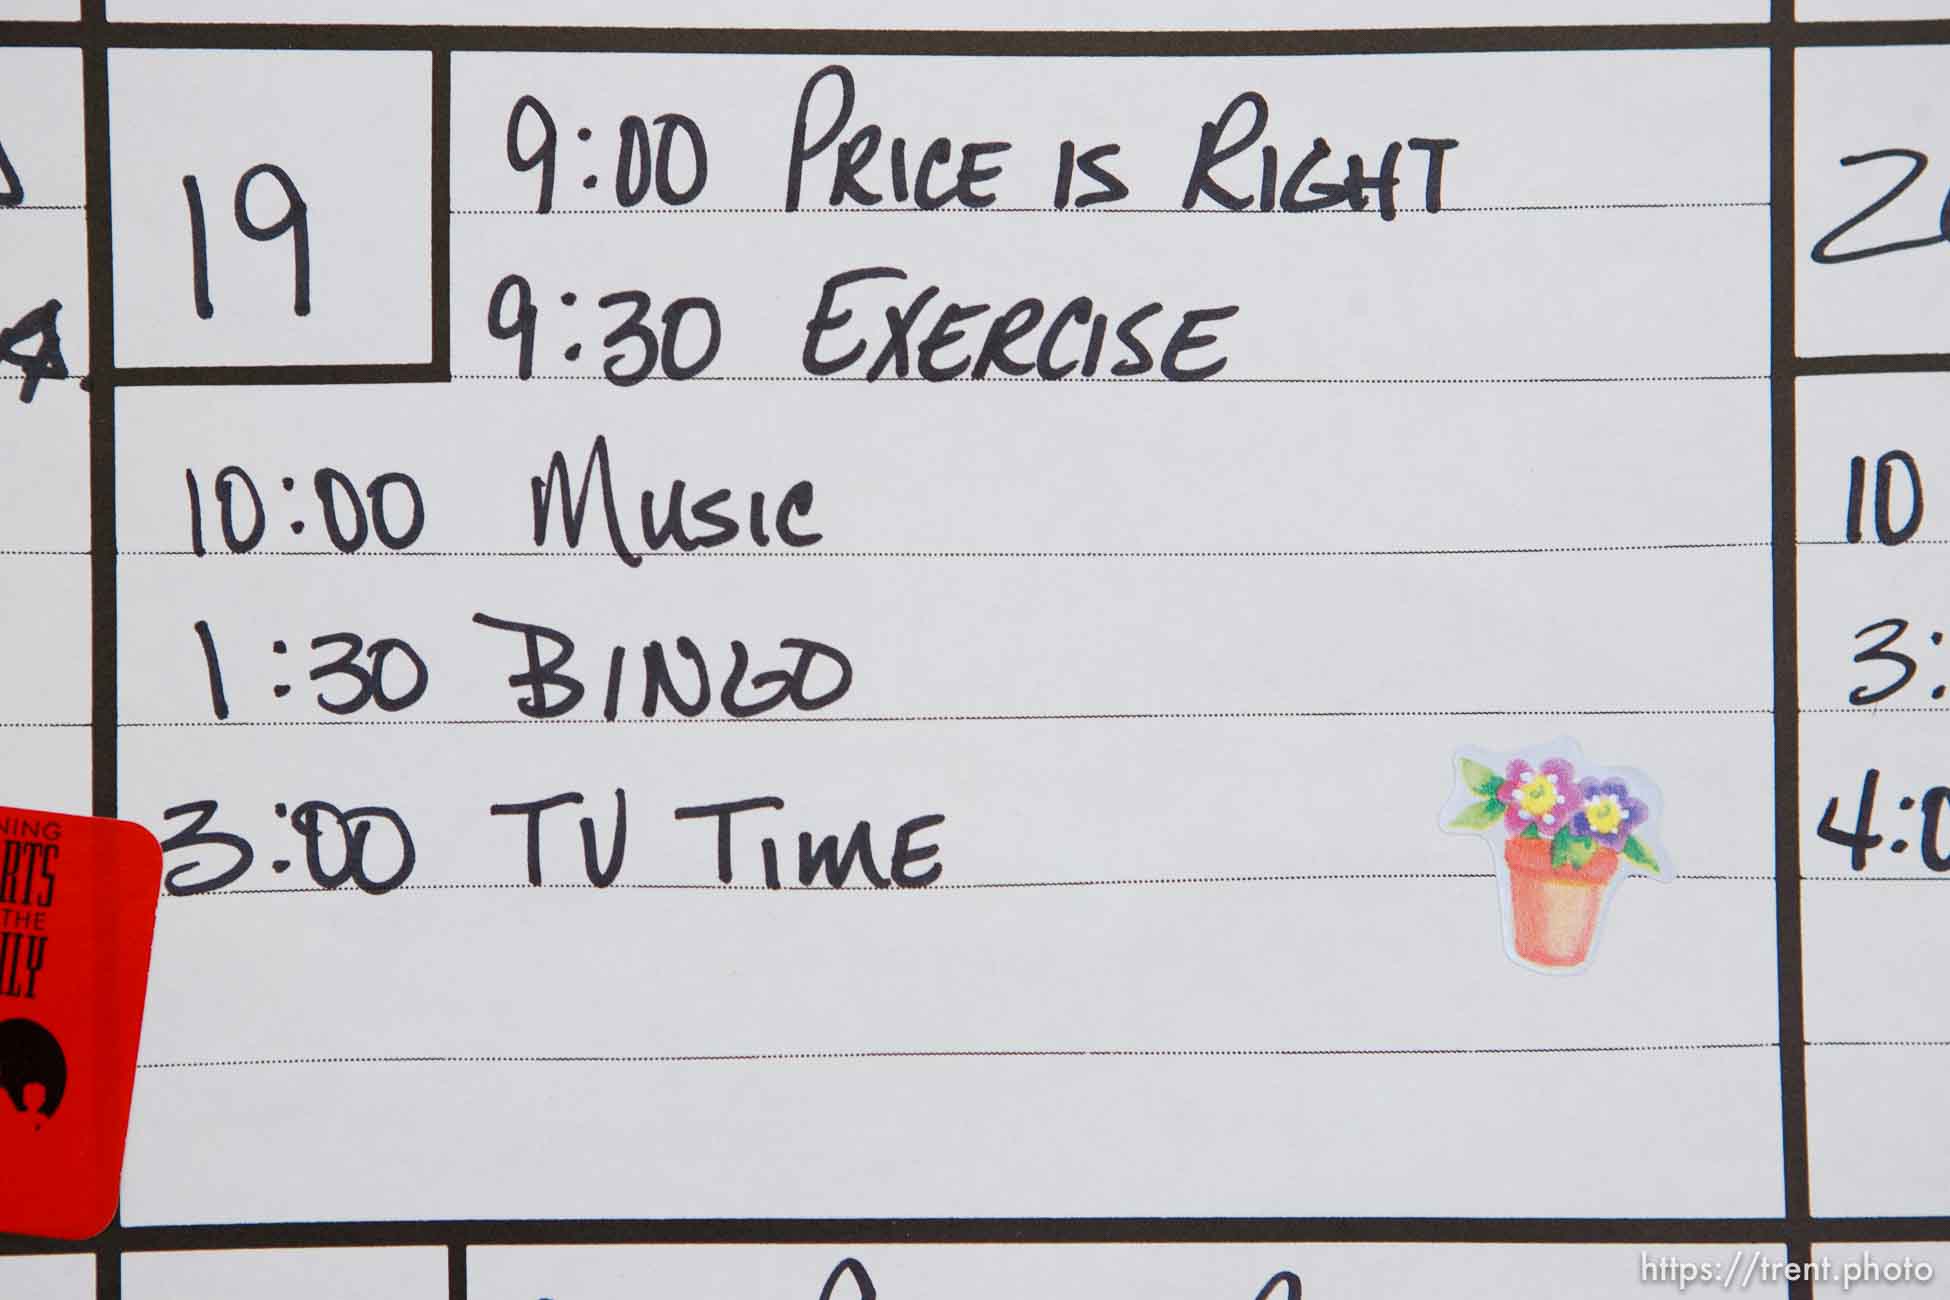 19
9:00 PRICE IS RIGHT
9:30 EXERCISE
10:00 MUSIC
1:30 BINGO
3:00 TV TIME
10
3:
4:0
THE
https://trent.photo